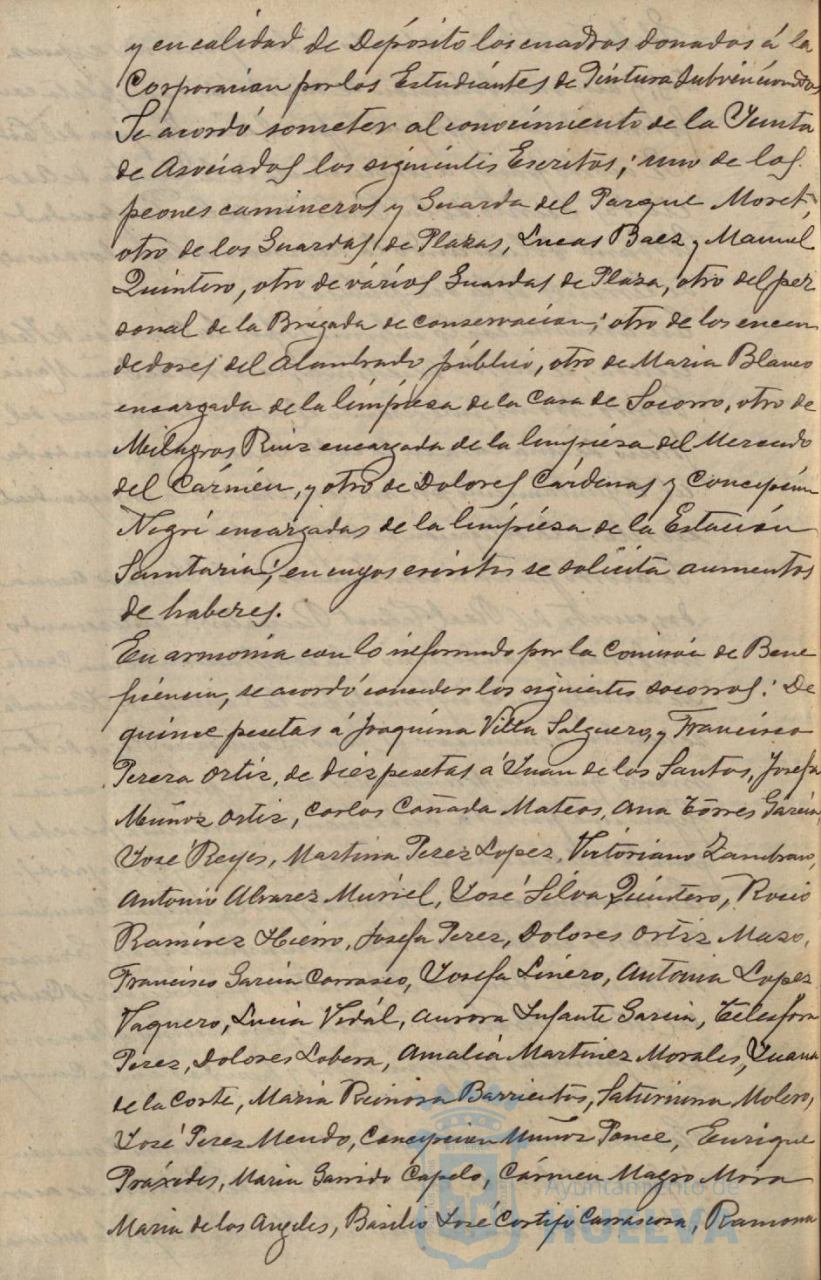 y en calidad de Depósito los cuadros donados á la
Corporacion por los Estudiantes de Pintura subvencionados
Se acordó someter al conocimiento de la Junta
de Asociados los siguientes Escritos; uno de los
peones camineros y Guarda del Parque Moret,
otro de los Guardas de Plazas, Lucas Baez y Manuel
Quintero, otro de vários Guardas de Plaza, otro del per
sonal de la Brigada de conservacion; otro de los encen
dedores del alumbrado público, otro de Maria Blanco
encargada de la limpieza de la Casa de Socorro, otro de
Milagros Ruiz encargada de la limpieza del Mercado
del Cármen, y otro de Dolores Cárdenas y Concepción
Negri encargadas de la limpieza de la Estación
Sanitaria; en cuyos escritos se solicita aumentos
de haberes.
En armonia con lo informado por la Comisión de Bene
ficencia, se acordó conceder los siguientes socorros: De
quince pesetas á Joaquina Villa Salguero, y Francisco
Perera Ortiz, de diez pesetas á Juan de los Santos, Josefa
Muñoz Ortiz, Carlos Cañada Mateos, Ana Torres Garcia,
José Reyes, Martina Perez Lopez, Victoriano Zambrano,
Antonio Alvarez Muriel, José Silva Quintero, Rocio
Ramirez Hierro, Josefa Perez, Dolores Ortiz Mazo,
Francisco Garcia Carrasco, Josefa Liñero, Antonia Lopez
Vaquero, Lucia Vidál, Aurora Infante Garcia, Telesfora
Perez, Dolores Lobera, Amalia Martinez Morales, Juana
de la Corte, Maria Reinosa Barrientos, Saturnina Molero,
José Perez Mendo, Concepcion Muñoz Ponce, Enrique
Práxedes, Maria Garrido Capelo, Cármen Magro Mora
Maria de los Angeles, Basilio José Cortijo Carrascosa, Ramona
Ayuntamiento de
HUELVA